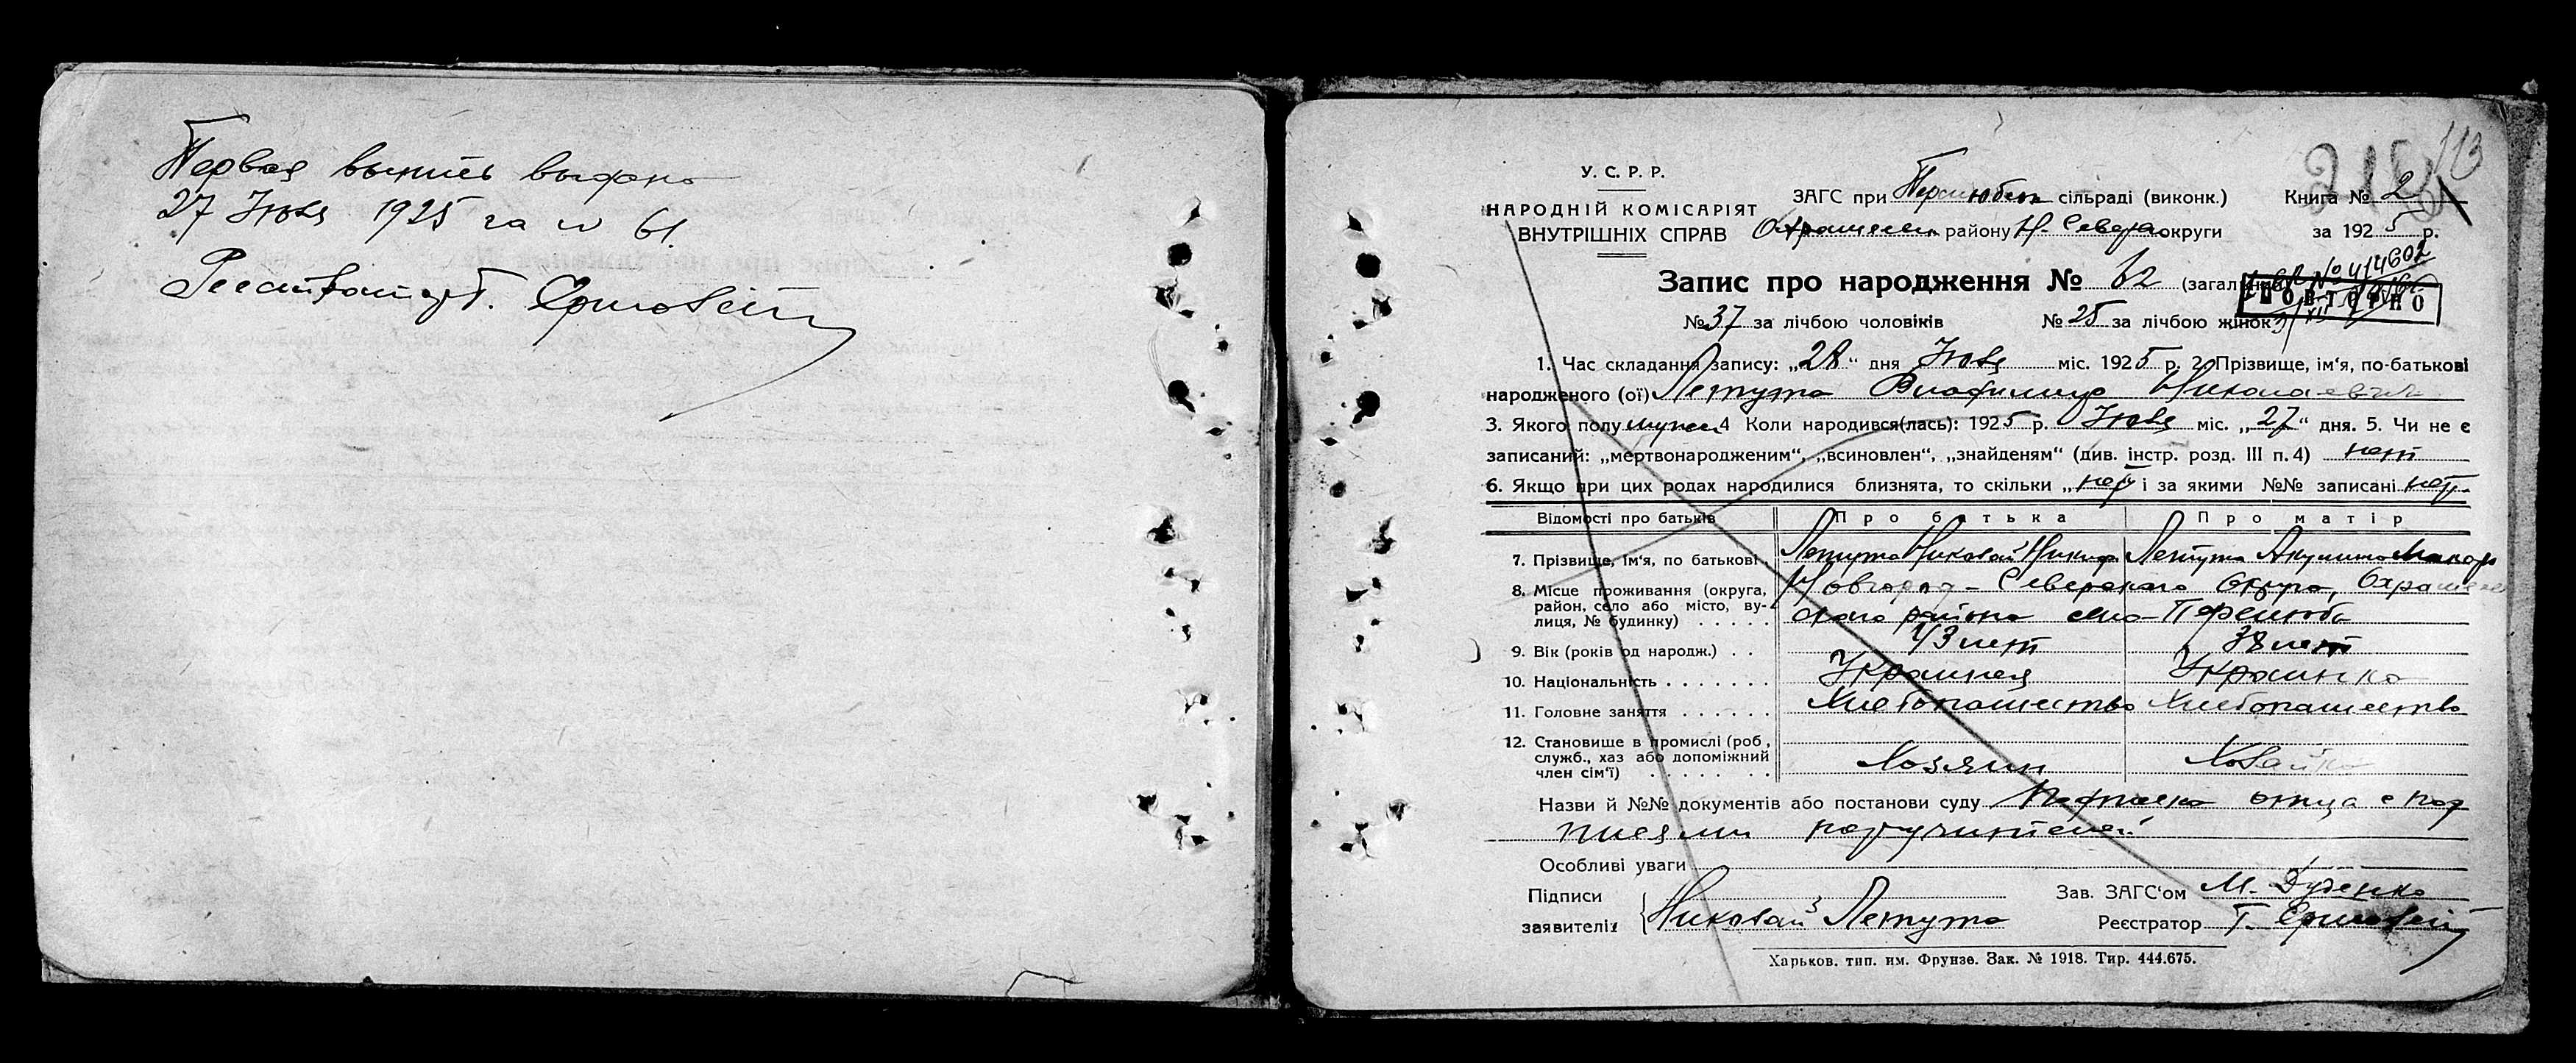 Первая выпись выдана
27 Июля 1925 га № 61
113
У. С. Р. Р.
НАРОДНІЙ КОМІСАРІЯТ
ВНУТРІШНІХ СПРАВ
ЗАГС при Перелюбск сільраді (виконк.) Книга № 2
району Н. Северск округи за 1925 р.
№ 414602
Запис про народження № 62 (загальний)
ПОВТОРНО
№ 37 за лічбою чоловіків № 25 за лічбою жінок
1. Час складання запису: „28“ дня Июля міс. 1925 р. 2. Прізвище, ім‘я, по-батькові
народженого (ої) Лепута Владимир Николаевич
3. Якого полу мужск 4 Коли народився(лась): 1925 р. Июля міс. „27“ дня. 5. Чи не є
записаний: „мертвонародженим“, „всиновлен“, „знайденям“ (див. інстр. розд. III п. 4) нет
6. Якщо при цих родах народилися близнята, то скільки „нет“ і за якими №№ записані нет
Відомості про батьків Про батька Про матір
7. Прізвище, ім‘я, по батькові Лепута Николай Никиф Лепута Акулина Макар
8. Місце проживання (округа, район, село або місто, вулиця, № будинку) Новгород-Северского округа,
ского района село Перелюб
9. Вік (років од народж.) 43 лет 38 лет
10. Національність Украинец Украинка
11. Головне заняття Хлебопашество Хлебопашество
12. Становище в промислі (роб., служб., хаз або допоміжний член сім‘ї) Хозяин Хозяйка
Назви й №№ документів або постанови суду отца с под
писями поручителей
Особливі уваги
Підписи Зав. ЗАГС‘ом М. Дуденко
заявителів Николай Лепута Реєстратор Г.
Харьков. тип. им. Фрунзе. Зак. № 1918. Тир. 444.675.